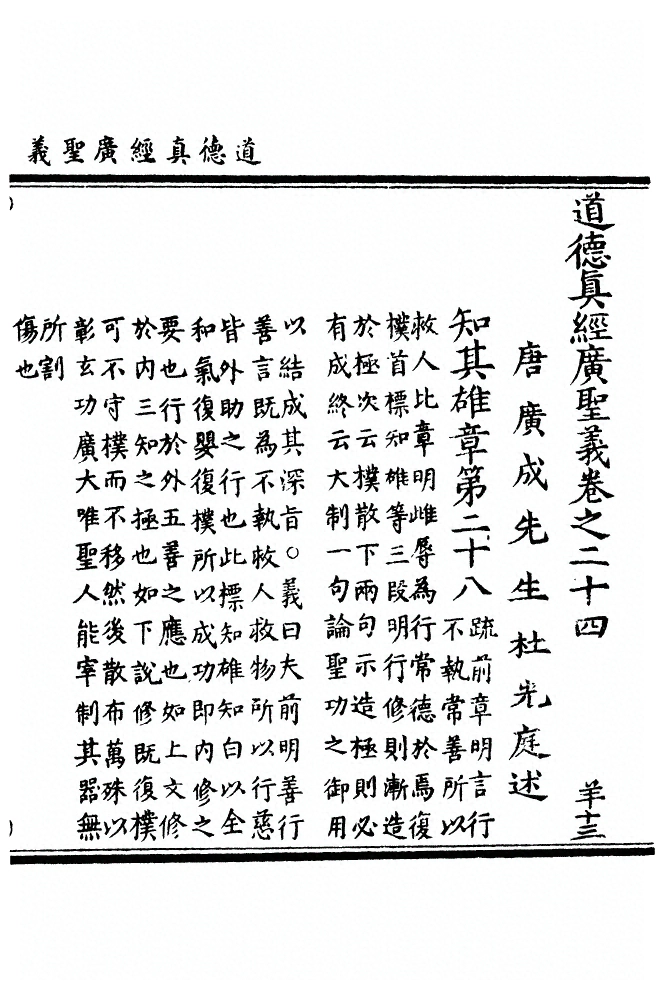 道德真經廣聖義
道德眞經廣聖義卷之二十四 羊十三
唐廣成先生杜光庭述
知其雄章第二十八
疏前章明言行
不執常善所以
救人比章明雌辱為行常德於焉復
樸首標知雄等三段明行修則漸造
於極次云樸散下兩句示造極則必
有成終云大制一句論聖功之御用
以結成其深旨○義曰夫前明善行
善言既為不執救人救物所以行慈
皆外助之行也此標知雄知白以全
和氣復嬰復樸所以成功即內修之
要也行於外五善之應也如上文修
於內三知之極也如下說修既復樸
可不守樸而不移然後散布萬殊以
彰玄功廣大唯聖人能宰制其器無
所割
傷也